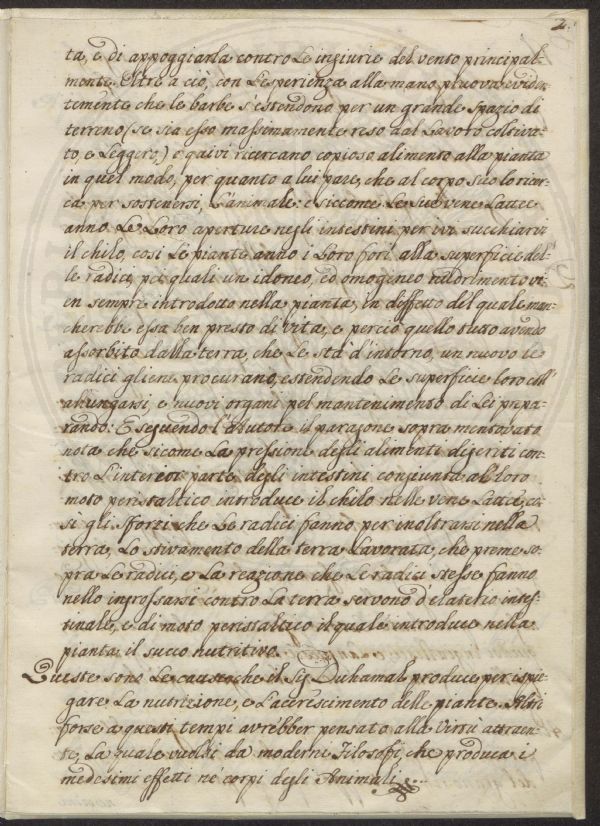 2.
ta, e di appoggiarla contro Le ingiurie del vento principal=
mente. Oltre a ciò, con L'esperienza alla mano pruova eviden
temente che le barbe s'estendono per un grande spazio di
terreno (se sia esso massimamente reso dal Lavoro coltiva=
to, e Leggero,) e quivi ricercano copioso alimento alla pianta
in quel modo, per quanto a lui pare, che al corpo suo lo ricer=
ca per sostenersi, L'animale: e siccome Le sue vene Lattee
anno Le Loro aperture negli intestini per ivi succhiarvi
il chilo, così Le piante anno i Loro fori alla superficie del=
le radici, pei quali un idoneo, ed omogeneo nudrimento vi=
en sempre introdotto nella pianta, in diffetto del quale man=
cherebbe essa ben presto di vita, e perciò quello tutto avendo
assorbito dalla terra, che Le stà d'intorno, un nuovo le
radici gliene procurano, estendendo Le superficie loro coll'
allungarsi, e nuovi organi pel mantenimento di Lei prepa=
rando. Eseguendo l'Autore il paragone sopra mentovato
nota che siccome La pressione degli alimenti digeriti con=
tro L'interior parte degli intestini congiunta al loro
moto peristaltico introduce il chilo nelle vene Lattee, co=
sì gli sforzi che Le radici fanno per inoltrarsi nella
terra, Lo stivamento della terra Lavorata, che preme so=
pra Le radici, e La reazione che Le radici stesse fanno
nello ingrossarsi contro La terra servono d'elaterio intes=
tinale, e di moto peristaltico il quale introduce nella
pianta il succo nutritivo.
Queste sono Le cause che il Sig. Duhamel produce per ispie=
gare La nutrizione, e L'accrescimento delle piante. Altri
forse a questi tempi avrebber pensato alla Virtù attraen=
te, La quale vuolsi da moderni Filosofi, che produca i
medesimi effetti ne' corpi degli Animali.